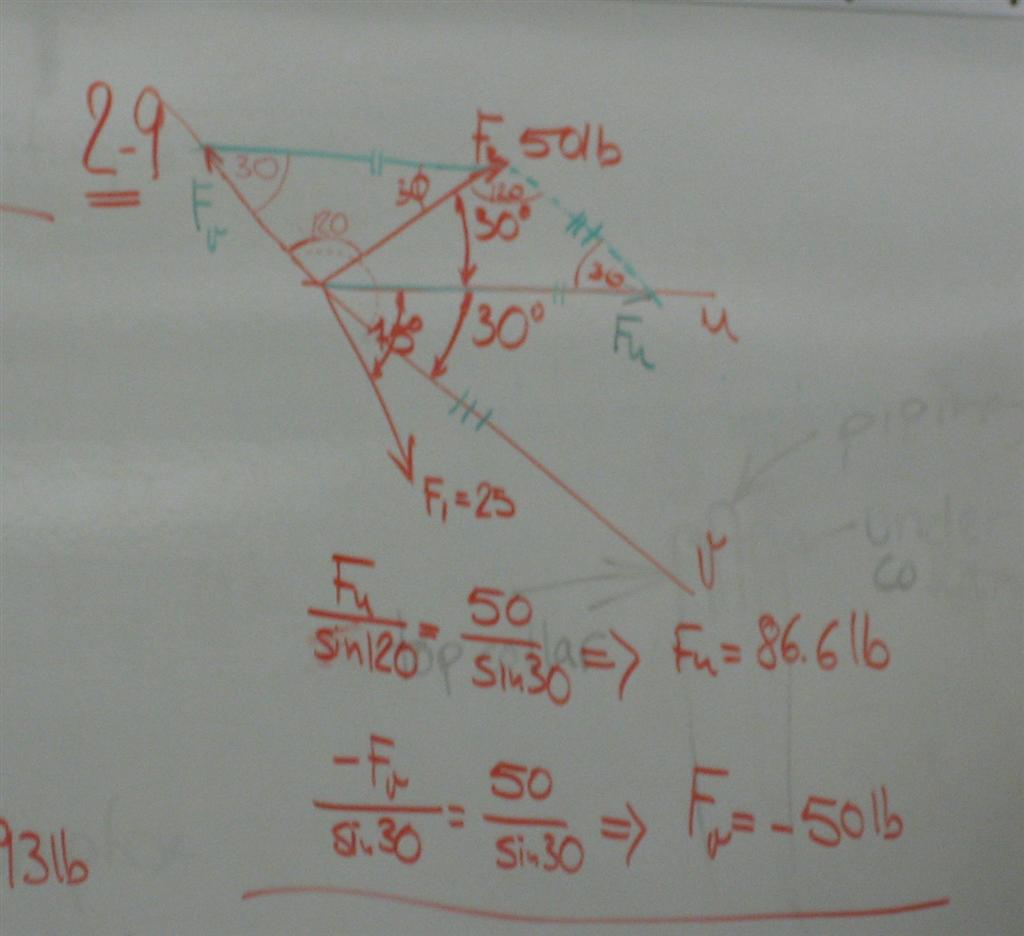 2-9
F₂ 50lb
30
30
120
F_v
120
30°
30
u
F_u
30°
F₁ = 25
v
F_u / sin120 = 50 / sin30 => F_u = 86.6 lb
-F_v / sin30 = 50 / sin30 => F_v = -50 lb
93lb